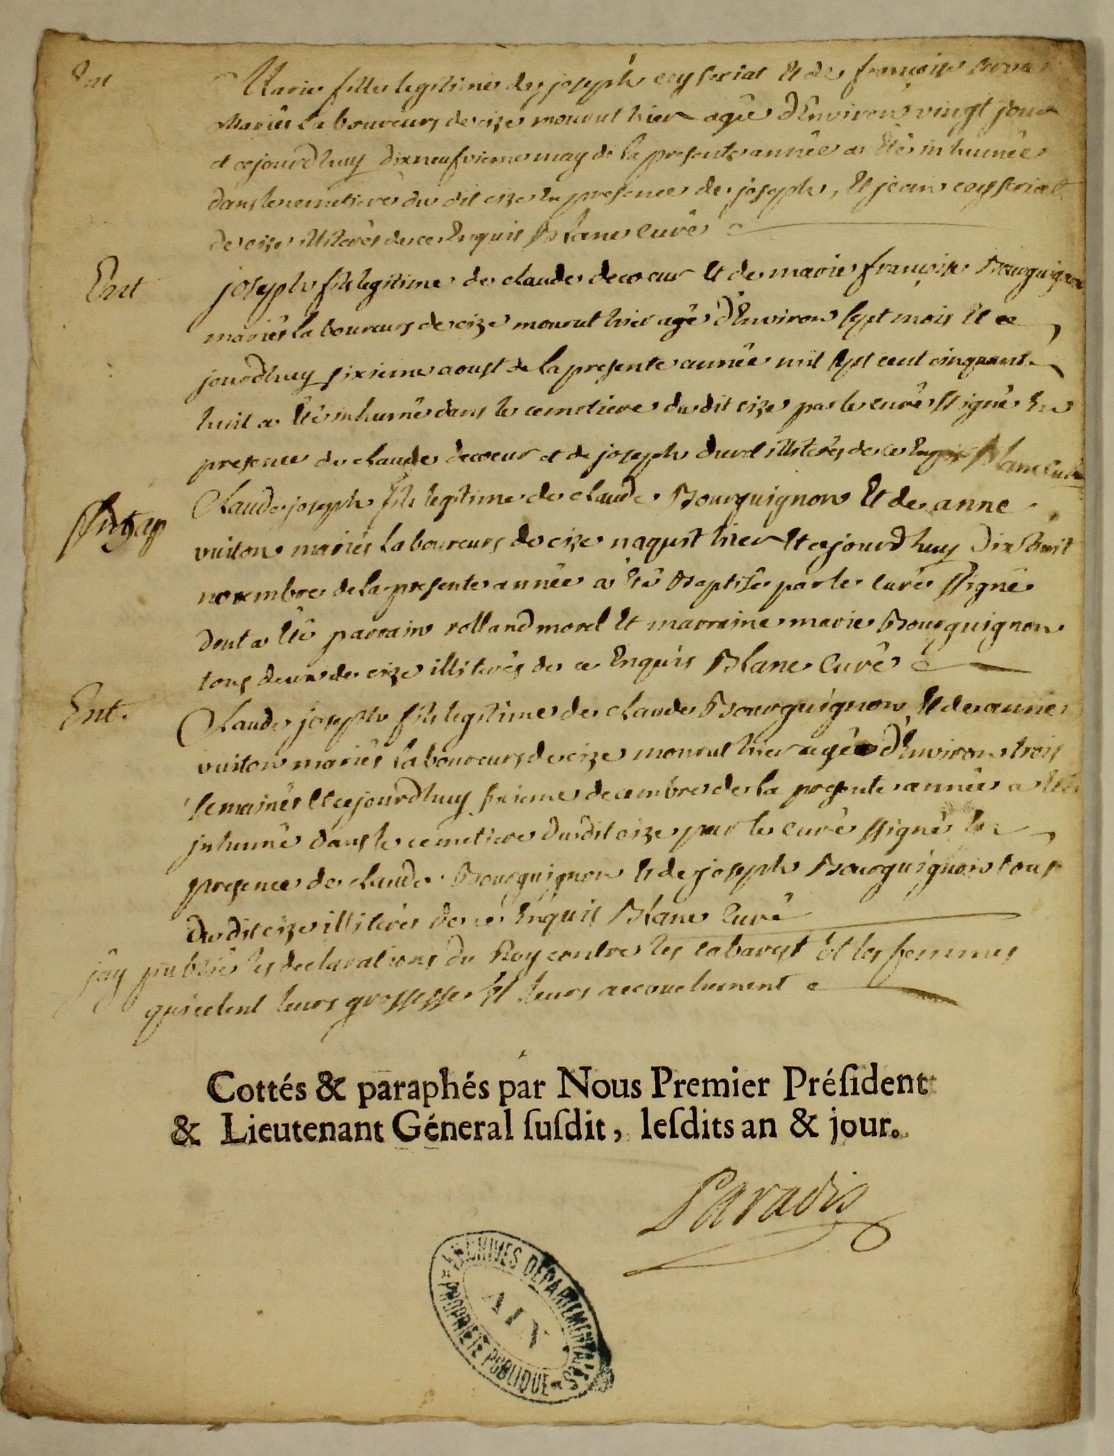 Ent
Marie fille legitime de joseph ceyseriat Et de françoise
Mariés Laboureurs de cize mourut hier agée D'Environ vingt jours
et cejourdhuy dixneufvieme may de la presente année a Eté inhumée
dans le cemetiere du dit cize En presence de joseph, Et jean ceyseriat
de cize illiterés de ce Enquis Blanc Curé
Ent
joseph fils legitime de claude decoeur Et de marie françoise Bourguignon
mariés laboureurs de cize mourut hier agé D'Environ sept mois Et ce
jourdhuy sixieme aoust de la presente année mil sept cent cinquante
huit a Eté inhumé dans le cemetiere du dit cize par le curé ssigné En
presence de claude decoeur et de joseph illiterés de ce Enquis Blanc Curé
Bap
Claude joseph fils legitime de claude Bourguignon Et de anne
vuiton mariés laboureurs de cize naquit hier Et cejourdhuy Dix huit
novembre de la presente année a Eté Baptisé par le Curé ssigné
dont a Eté parrain rolland morel Et marraine marie Bourguignon
tous deux de cize illiterés de ce Enquis Blanc Curé
Ent.
Claude joseph fils legitime de claude Bourguignon Et de anne
vuiton mariés laboureurs de cize mourut hier agé D'Environ trois
semaines Et cejourdhuy sixieme decembre de la presente année a Eté
inhumé dans le cemetiere Du dit cize par le curé ssigné En
presence de claude Bourguignon Et de joseph Bourguignon tous
Du dit cize illiterés de ce Enquis Blanc Curé
jay publié les declarations du Roy contre les cabarest Et les femmes
qui celent leurs grossesse Et leurs accouchement
Cottés & paraphés par Nous Premier Préſident
& Lieutenant Géneral ſuſdit, leſdits an & jour.
Paradis
ARCHIVES DÉPARTEMENTALES
AIN
PROPRIÉTÉ PUBLIQUE